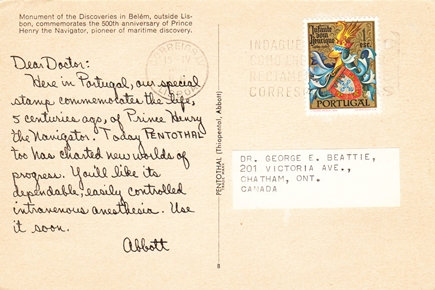 Monument of the Discoveries in Belém, outside Lis-
bon, commemorates the 500th anniversary of Prince
Henry the Navigator, pioneer of maritime discovery.
Dear Doctor:
Here in Portugal, our special
stamp commemorates the life,
5 centuries ago, of Prince Henry
the Navigator. Today PENTOTHAL
too has charted new worlds of
progress. You'll like its
dependable, easily controlled
intravenous anesthesia. Use
it soon.
Abbott
8
PENTOTHAL (Thiopental, Abbott)
INDAGUE
CORRES
Infante
dom
Henrique
1
esc.
PORTUGAL
DR. GEORGE E. BEATTIE,
201 VICTORIA AVE.,
CHATHAM, ONT.
CANADA